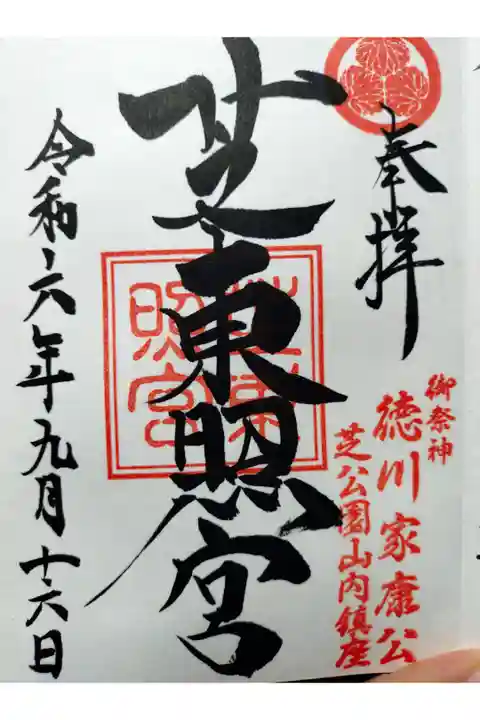 奉拝
御祭神
徳川家康公
芝公園山内鎮座
芝東照宮
芝東照宮
令和六年九月十六日